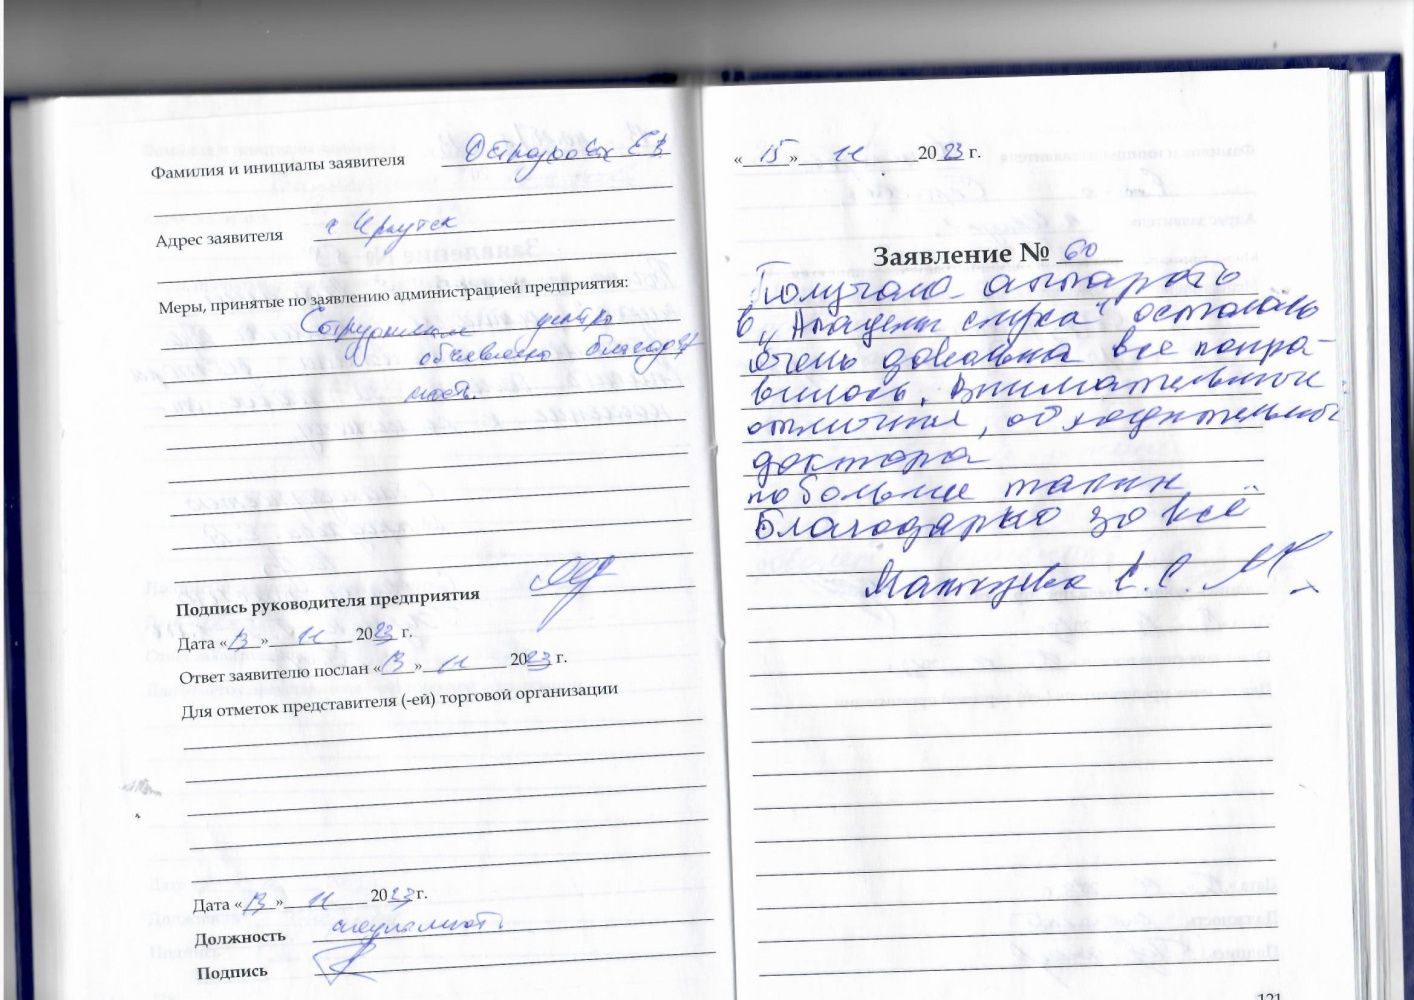 Фамилия и инициалы заявителя
Адрес заявителя г Иркутск
Меры, принятые по заявлению администрацией предприятия:
Сотрудникам центра
объявлена благодар
ность.
Подпись руководителя предприятия
Дата «13» 11 2023 г.
Ответ заявителю послан «13» 11 2023 г.
Для отметок представителя (-ей) торговой организации
Дата «13» 11 2023 г.
Должность специалист
Подпись
«15» 11 2023 г.
Заявление № 60
Получала аппараты
в „Академии слуха“ осталась
очень довольна все понра-
вилось. Внимательные
отличные, обходительные
доктора
побольше таких
Благодарю за всё
Е. С.
121